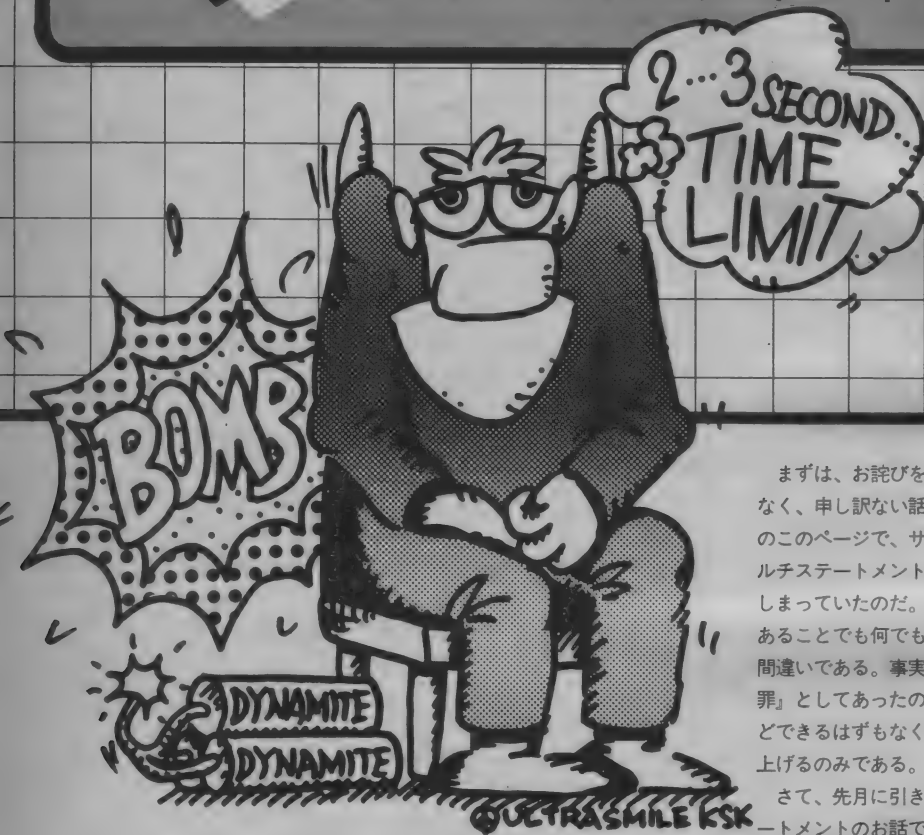 2…3 SECOND..
TIME
LIMIT
BOMB
DYNAMITE
DYNAMITE
©ULTRASMILE KSK
まずは、お詫びを
なく、申し訳ない話
のこのページで、サ
ルチステートメント
しまっていたのだ。
あることでも何でも
間違いである。事実
罪』としてあったの
どできるはずもなく
上げるのみである。
さて、先月に引き
ートメントのお話で